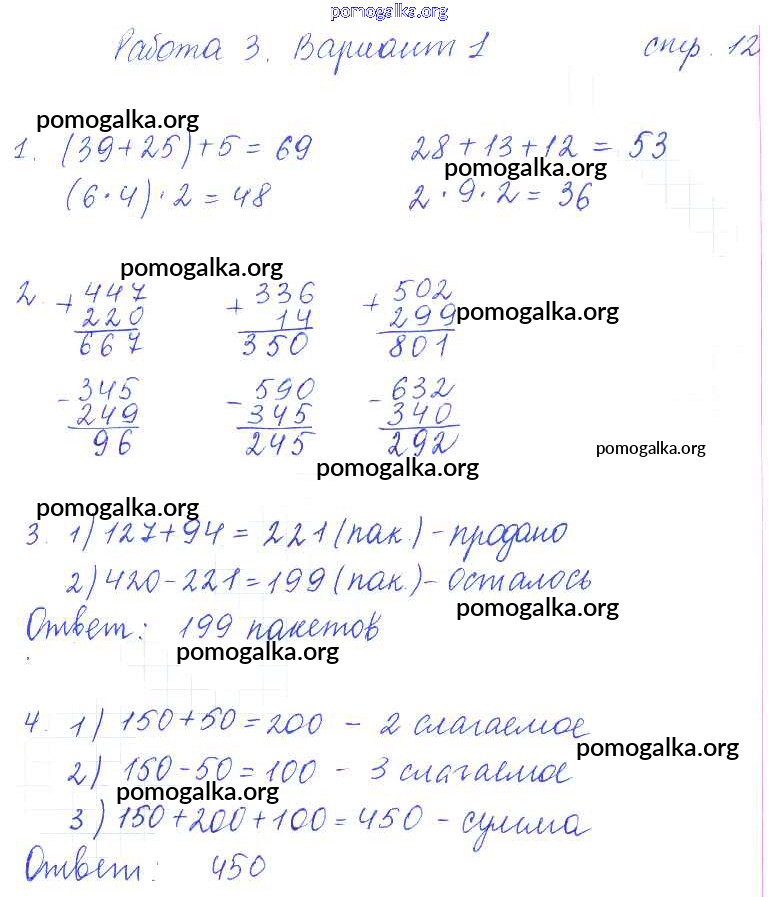 pomogalka.org
Работа 3. Вариант 1 стр. 12
pomogalka.org
1. (39+25)+5=69 28+13+12=53
pomogalka.org
(6·4)·2=48 2·9·2=36
pomogalka.org
2. +447 +336 +502
220 14 299 pomogalka.org
667 350 801
-345 -590 -632
249 345 340
96 245 292
pomogalka.org
pomogalka.org
pomogalka.org
3. 1) 127+94=221 (пак.) - продано
2) 420-221=199 (пак.) - осталось
pomogalka.org
Ответ: 199 пакетов
pomogalka.org
4. 1) 150+50=200 - 2 слагаемое
pomogalka.org
2) 150-50=100 - 3 слагаемое
pomogalka.org
3) 150+200+100=450 - сумма
Ответ: 450